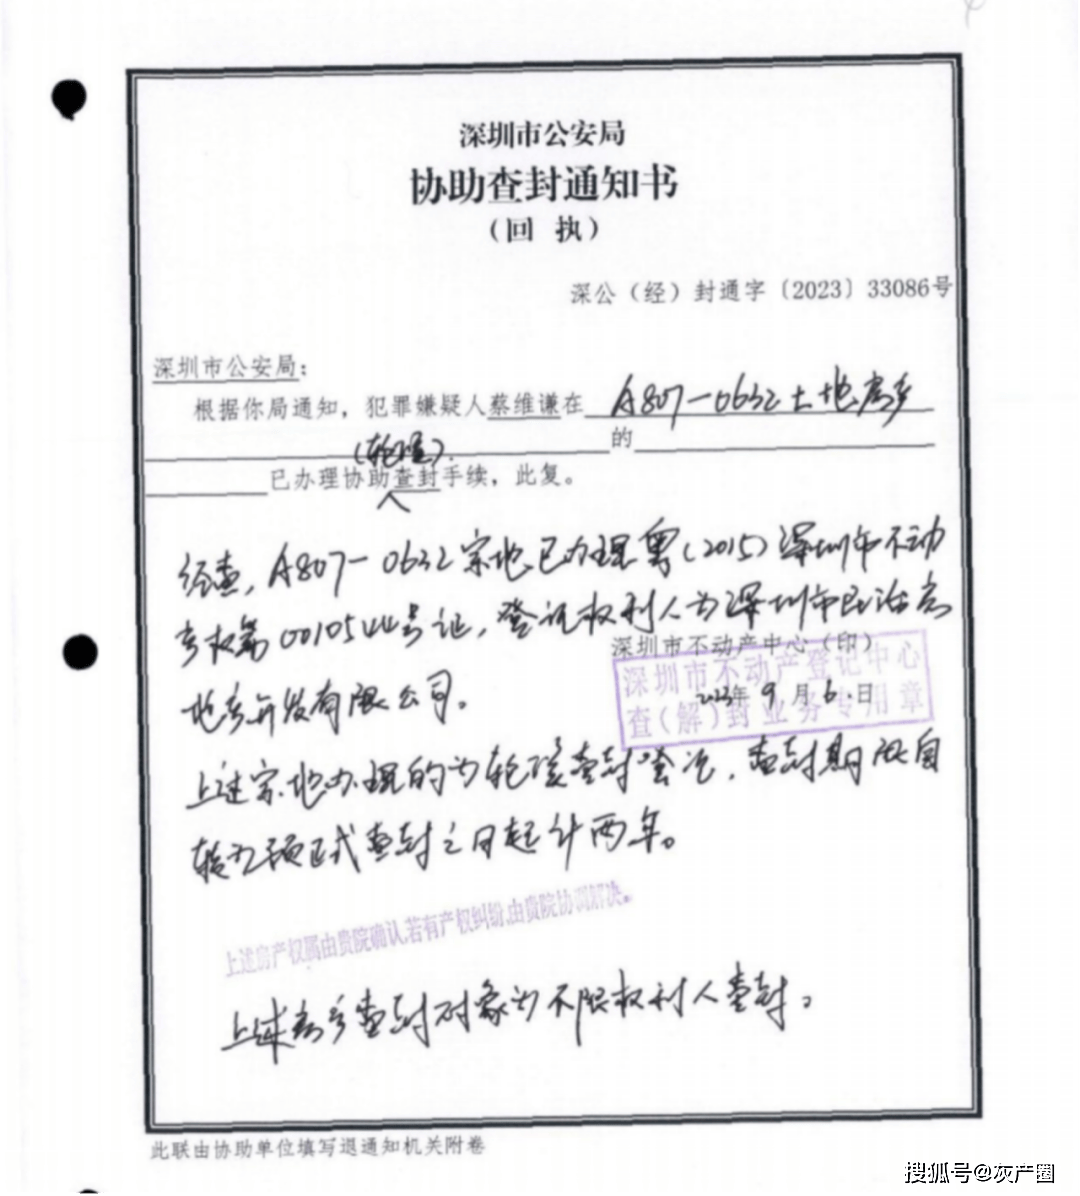 深圳市公安局
协助查封通知书
（回 执）
深公（经）封通字〔2023〕33086号
深圳市公安局：
根据你局通知，犯罪嫌疑人蔡维谦在 A807-0632土地房产
的
(轮候)
已办理协助查封手续，此复。
经查，A807-0632宗地已办理粤(2015)深圳市不动
产权第0010544号证，登记权利人为深圳市民治房
深圳市不动产中心（印）
深圳市不动产登记中心
2023年9月6日
查(解)封业务专用章
地产开发有限公司。
上述宗地办理的为轮候查封登记，查封期限自
转为正式查封之日起计两年。
上述房产权属由贵院确认,若有产权纠纷,由贵院协调解决。
上述房产查封对象为不限权利人查封。
此联由协助单位填写退通知机关附卷
搜狐号@灰产圈